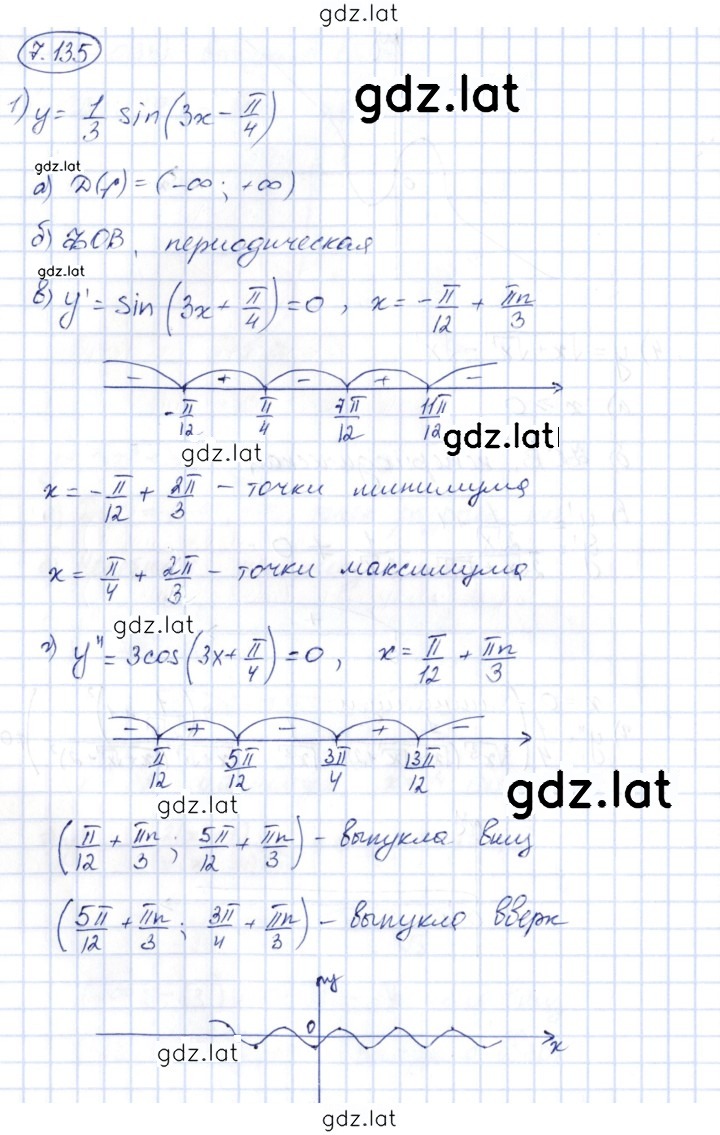 gdz.lat
7.135
1) y = 1/3 sin(3x - π/4)
gdz.lat
gdz.lat
а) D(f) = (-∞; +∞)
б) ЗОВ, периодическая
gdz.lat
в) y' = sin(3x + π/4) = 0, x = -π/12 + πn/3
- + - + -
-π/12 π/4 7π/12 11π/12
gdz.lat
gdz.lat
x = -π/12 + 2π/3 - точки минимума
x = π/4 + 2π/3 - точки максимума
gdz.lat
г) y'' = 3cos(3x + π/4) = 0, x = π/12 + πn/3
- + - + -
π/12 5π/12 3π/4 13π/12
gdz.lat
gdz.lat
(π/12 + πn/3; 5π/12 + πn/3) - выпукла вниз
(5π/12 + πn/3; 3π/4 + πn/3) - выпукла вверх
y
0
x
gdz.lat
gdz.lat